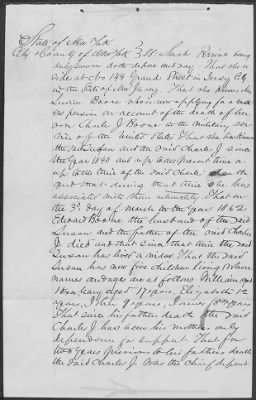 State of New York
City & County of New York } SS. Sarah Perrine being
duly sworn doth depose and say. That she re
sides at No 144 Grand Street in Jersey City
in the State of New Jersey. That she knows Mrs
Susan Boone who is now applying for a
pension on account of the death of her
son Charles J Boone in the military ser
vice of the United States. That she has known
the said Susan and the said Charles J since
the year 1840 and up to the present time a
up to the time of the said Charles death
and that during that time she has
associated with them intimately. That on
the 3d day of March in the Year 1862
Edward Boone the husband of the said
Susan and the father of the said Charles
J. died and that since that time the said
Susan has lived a widow. That the said
Susan has now five children living whose
names and ages are as follows William aged
Mary aged 17 years, Elizabeth 12
years, 9 years,
That since his fathers death the said
Charles J has been his mothers only
dependence for support. That for
two years previous to his fathers death
the said Charles J. was the chief depend